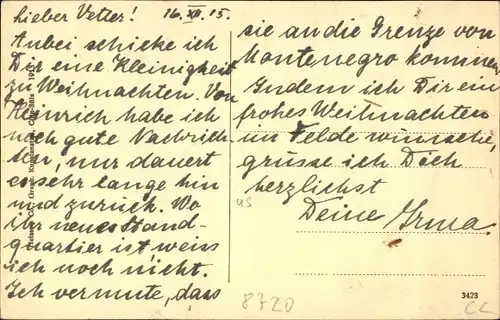 lieber Vetter! 16.XII.15.
Anbei schicke ich
Dir eine Kleinigkeit
zu Weihnachten. Von
Heinrich habe ich
noch gute Nachrich-
ten, nur dauert
es sehr lange hin
und zurück. Wo
ihr neues Stand-
quartier ist weiss
ich noch nicht.
Ich vermute, dass
sie an die Grenze von
Montenegro kommen
Indem ich Dir ein
frohes Weihnachten
im Felde wünsche,
grüsse ich Dich
herzlichst
Deine Irma.
8720
3423